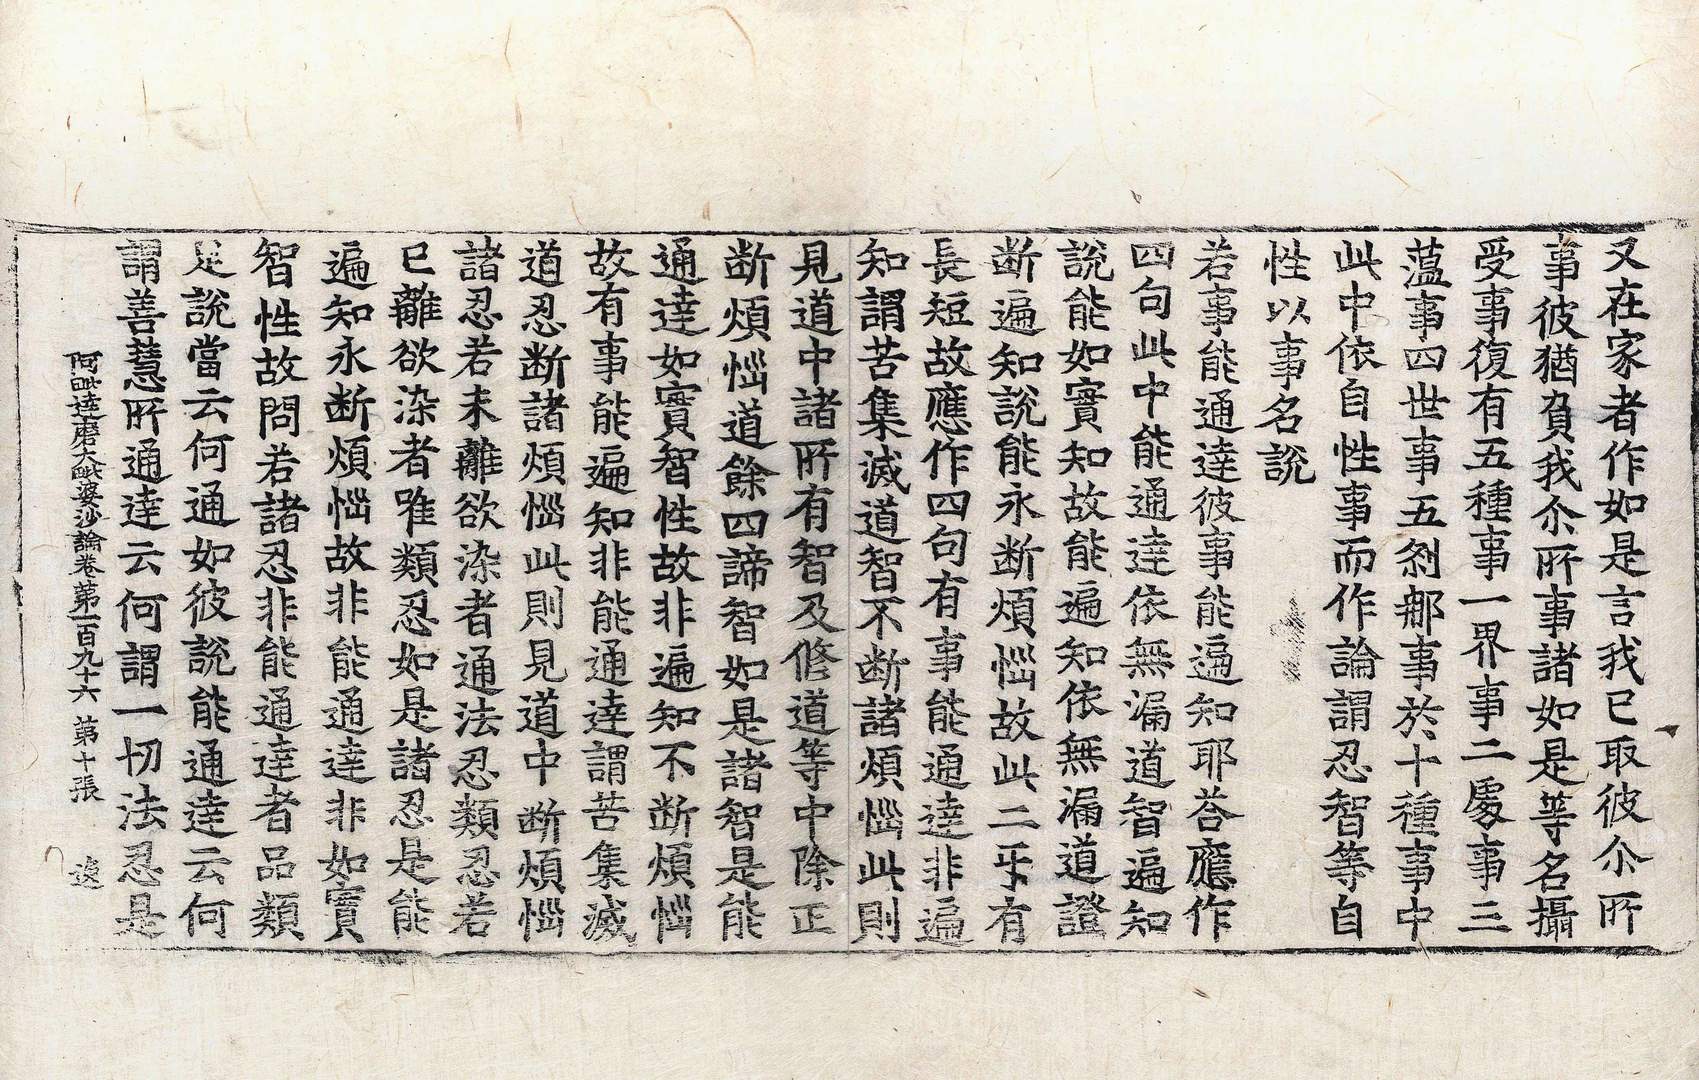 又在家者作如是言我已取彼尒所
事彼猶負我尒所事諸如是等名攝
受事復有五種事一界事二處事三
薀事四世事五刹那事於十種事中
此中依自性事而作論謂忍智等自
性以事名說
若事能通達彼事能遍知耶荅應作
四句此中能通達依無漏道智遍知
說能如實知故能遍知依無漏道證
断遍知說能永断煩惱故此二互有
長短故應作四句有事能通達非遍
知謂苦集滅道智不断諸煩惱此則
見道中諸所有智及修道等中除正
断煩惱道餘四諦智如是諸智是能
通達如實智性故非遍知不断煩惱
故有事能遍知非能通達謂苦集滅
道忍断諸煩惱此則見道中断煩惱
諸忍若未離欲染者通法忍類忍若
已離欲染者唯類忍如是諸忍是能
遍知永断煩惱故非能通達非如實
智性故問若諸忍非能通達者品類
足說當云何通如彼說能通達云何
謂善慧所通達云何謂一切法忍是
阿毗達磨大毗婆沙論卷第一百九十六 第十張 逸